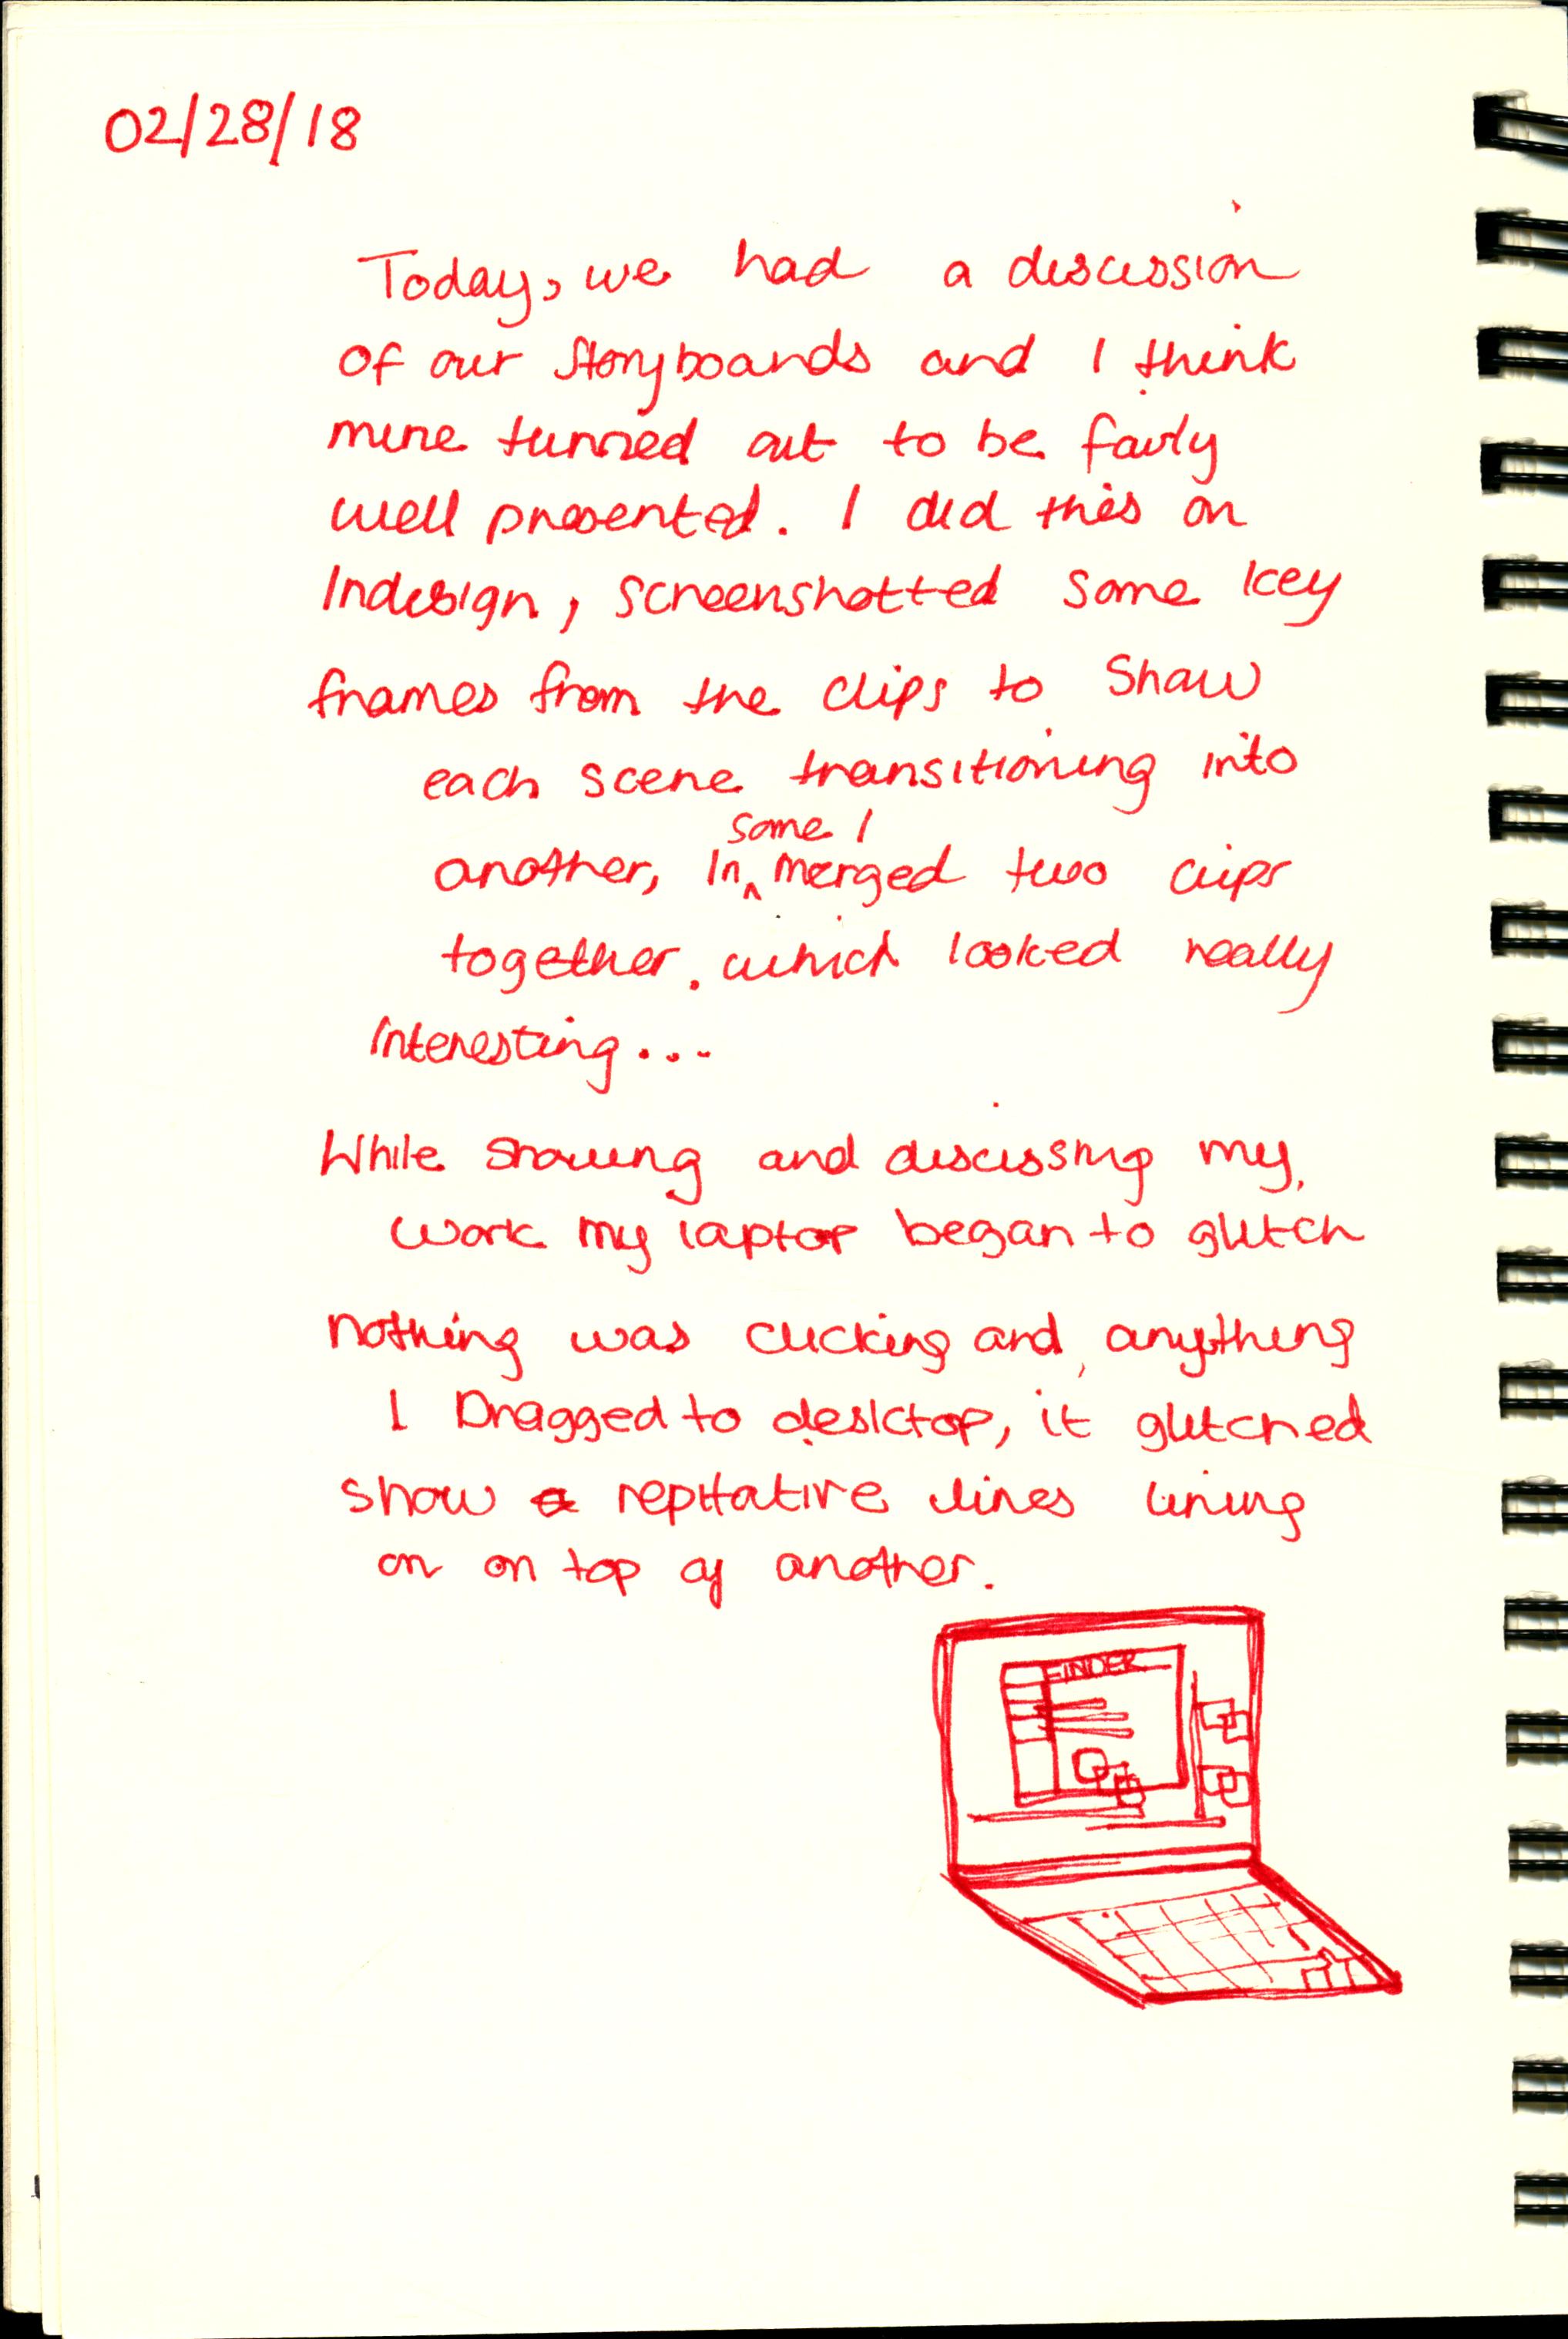 02/28/18
Today, we had a discussion
of our Storyboards and I think
mine turned out to be fairly
well presented. I did this on
Indesign, Screenshotted some key
frames from the clips to Show
each scene transitioning into
some I
another, In ^ merged two clips
together. which looked really
Interesting...
While showing and discussing my
work my laptop began to glitch
nothing was clicking and, anything
I Dragged to desktop, it glitched
show repitative lines lining
on on top of another.
FINDER